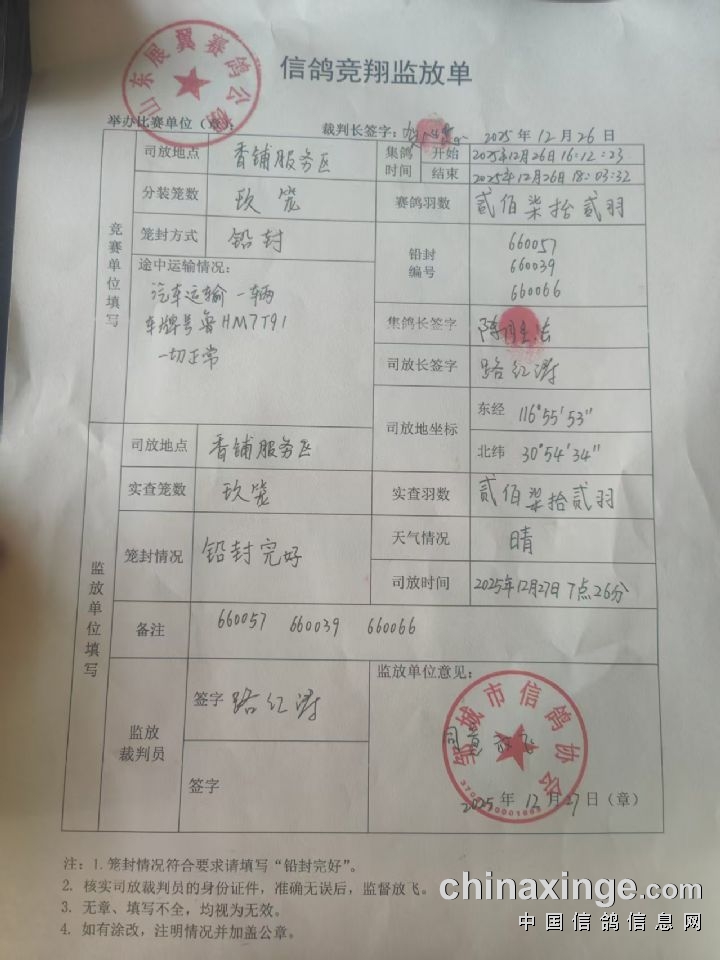 信鸽竞翔监放单
山东展翼赛鸽公棚
举办比赛单位（章）： 裁判长签字： 2025年12月26日
司放地点 香铺服务区 集鸽时间 开始 2025年12月26日16:12:23
结束 2025年12月26日18:03:32
分装笼数 玖笼 赛鸽羽数 贰佰柒拾贰羽
笼封方式 铅封 铅封编号 660057
660039
660066
竞赛单位填写
途中运输情况：
汽车运输一辆
车牌号鲁HM7T91
一切正常
集鸽长签字
司放长签字 路红涛
司放地坐标 东经 116°55′53″
北纬 30°54′34″
监放单位填写
司放地点 香铺服务区
实查笼数 玖笼 实查羽数 贰佰柒拾贰羽
笼封情况 铅封完好 天气情况 晴
司放时间 2025年12月27日7点26分
备注 660057 660039 660066
监放裁判员 签字 路红涛
签字
监放单位意见：
同意放飞
邹城市信鸽协会
2025年12月27日（章）
注：1.笼封情况符合要求请填写“铅封完好”。
2. 核实司放裁判员的身份证件，准确无误后，监督放飞。
3. 无章、填写不全，均视为无效。
4. 如有涂改，注明情况并加盖公章。
chinaxinge.com
中国信鸽信息网